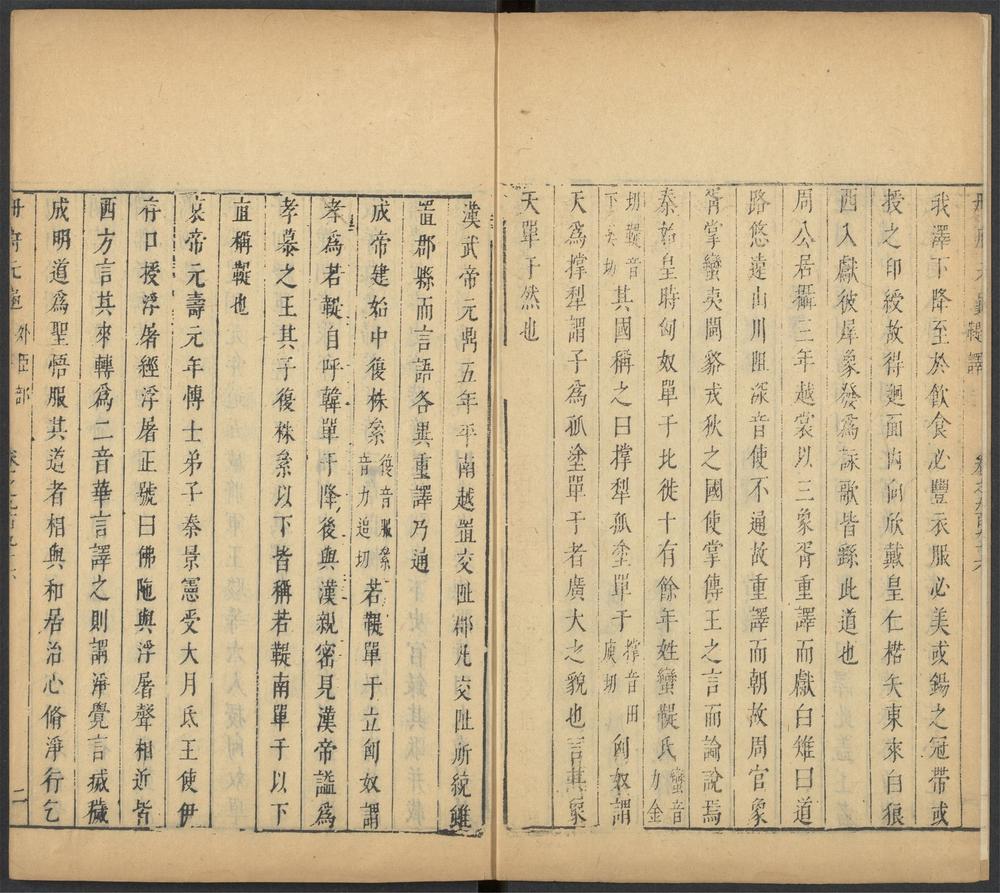 鞮譯
我澤下降至於飲食必豐衣服必美或錫之冠帶或
授之印綬故得廻面向欣戴皇仁楛矢東來白狼
西入獻彼犀象發為詠歌皆繇此道也
周公居攝三年越裳以三象胥重譯而獻白雉曰道
路悠遠山川阻深音使不通故重譯而朝故周官象
胥掌蠻夷閩貉戎狄之國使掌傳王之言而論說焉
秦始皇時匈奴單于比徙十有餘年姓蠻鞮氏蠻音力金
切鞮音丁奚切其國稱之曰撑犁孤塗單于撑音田庚切匈奴謂
天為撑犁謂子為孤塗單于者廣大之貌也言其象
天單于然也
漢武帝元鼎五年平南越置交阯郡凡交阯所統雖
置郡縣而言語各異重譯乃通
成帝建始中復株絫復音服絫音力追切若鞮單于立匈奴謂
孝為若鞮自呼韓單于降後與漢親密見漢帝謚為
孝慕之王其子復株絫以下皆稱若鞮南單于以下
直稱鞮也
哀帝元壽元年博士弟子秦景憲受大月氐王使伊
存口授浮屠經浮屠正號曰佛陁與浮屠聲相近皆
西方言其來轉為二音華言譯之則謂淨覺言滅穢
成明道為聖悟服其道者相與和居治心脩淨行乞
冊府元龜 外臣部 二